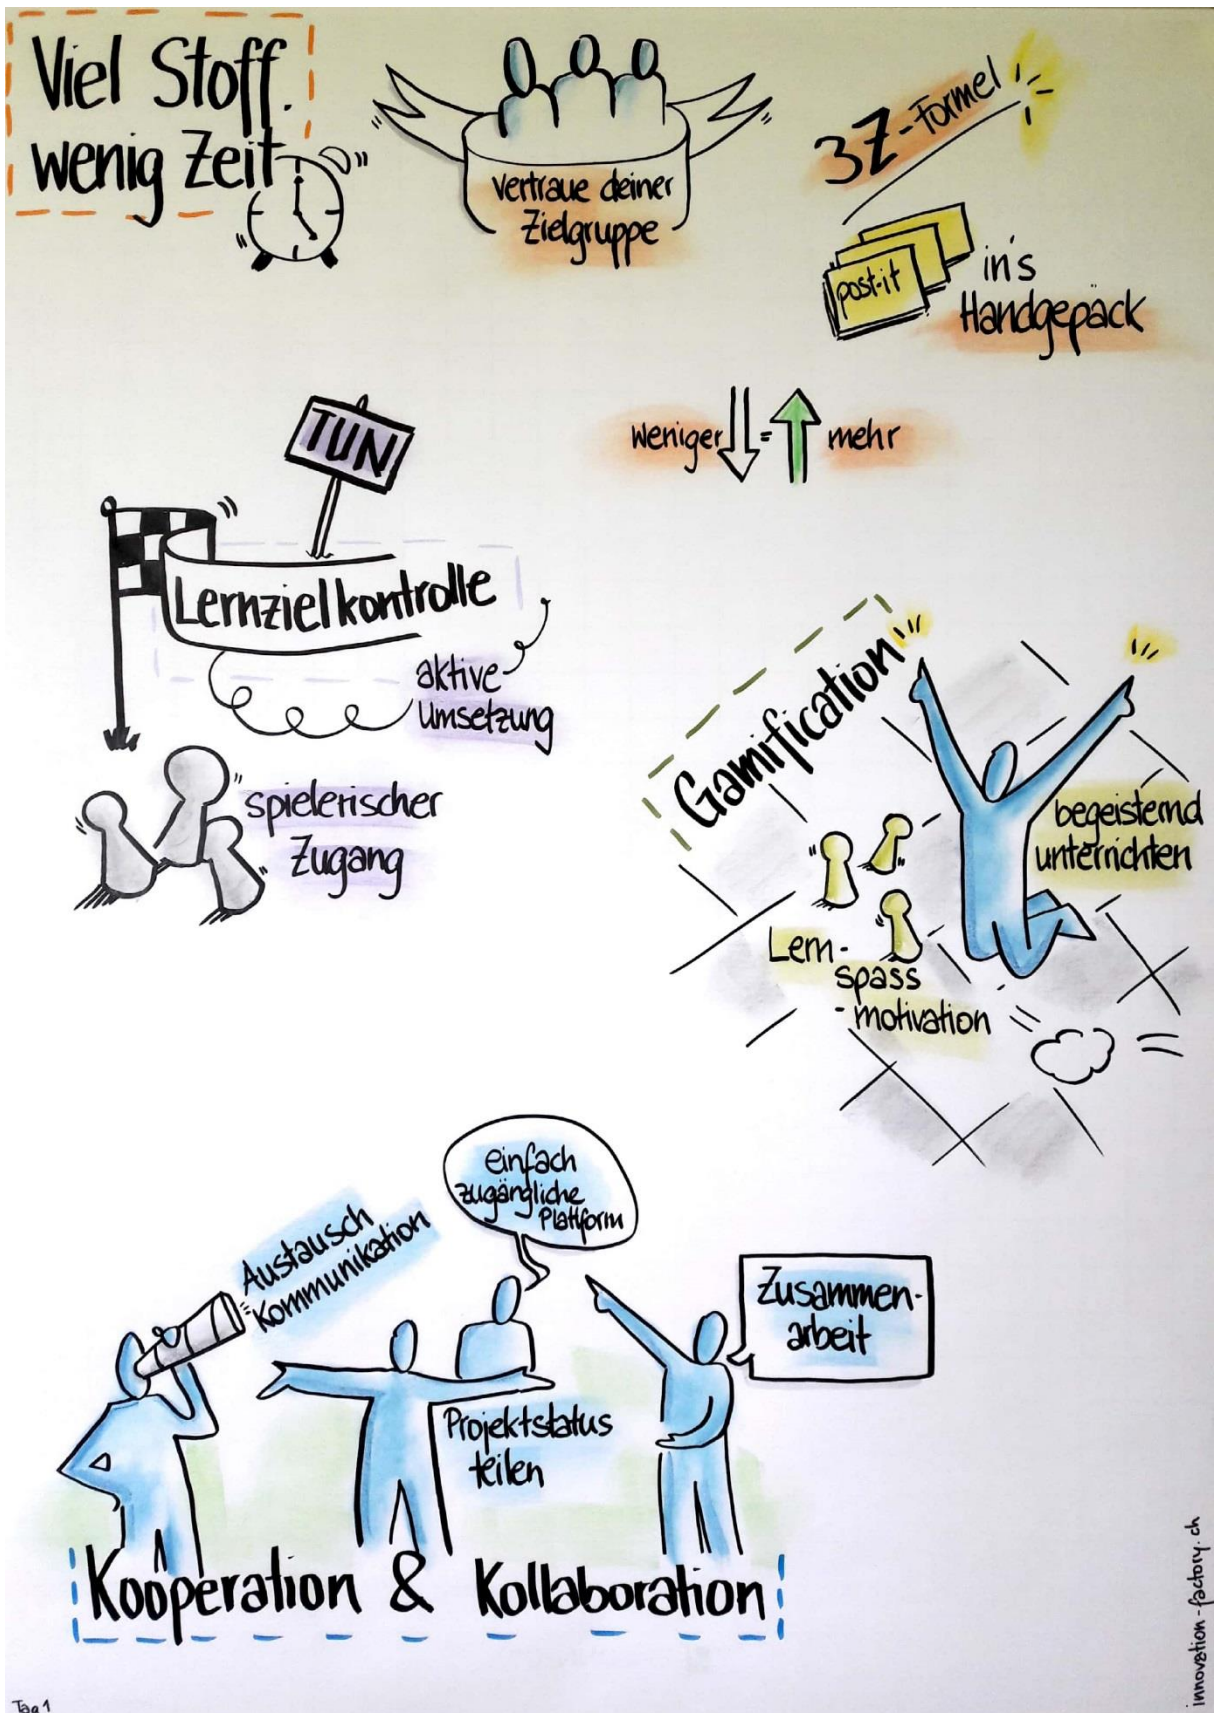 Viel Stoff.
wenig Zeit
vertraue deiner
Zielgruppe
3Z-Formel
post-it
in's
Handgepäck
weniger = mehr
TUN
Lernzielkontrolle
aktive
Umsetzung
spielerischer
Zugang
Gamification
begeisternd
unterrichten
Lern-
spass
-motivation
einfach
zugängliche
Plattform
Austausch
Kommunikation
Zusammen-
arbeit
Projektstatus
teilen
Kooperation & Kollaboration
Tag 1
innovation-factory.ch